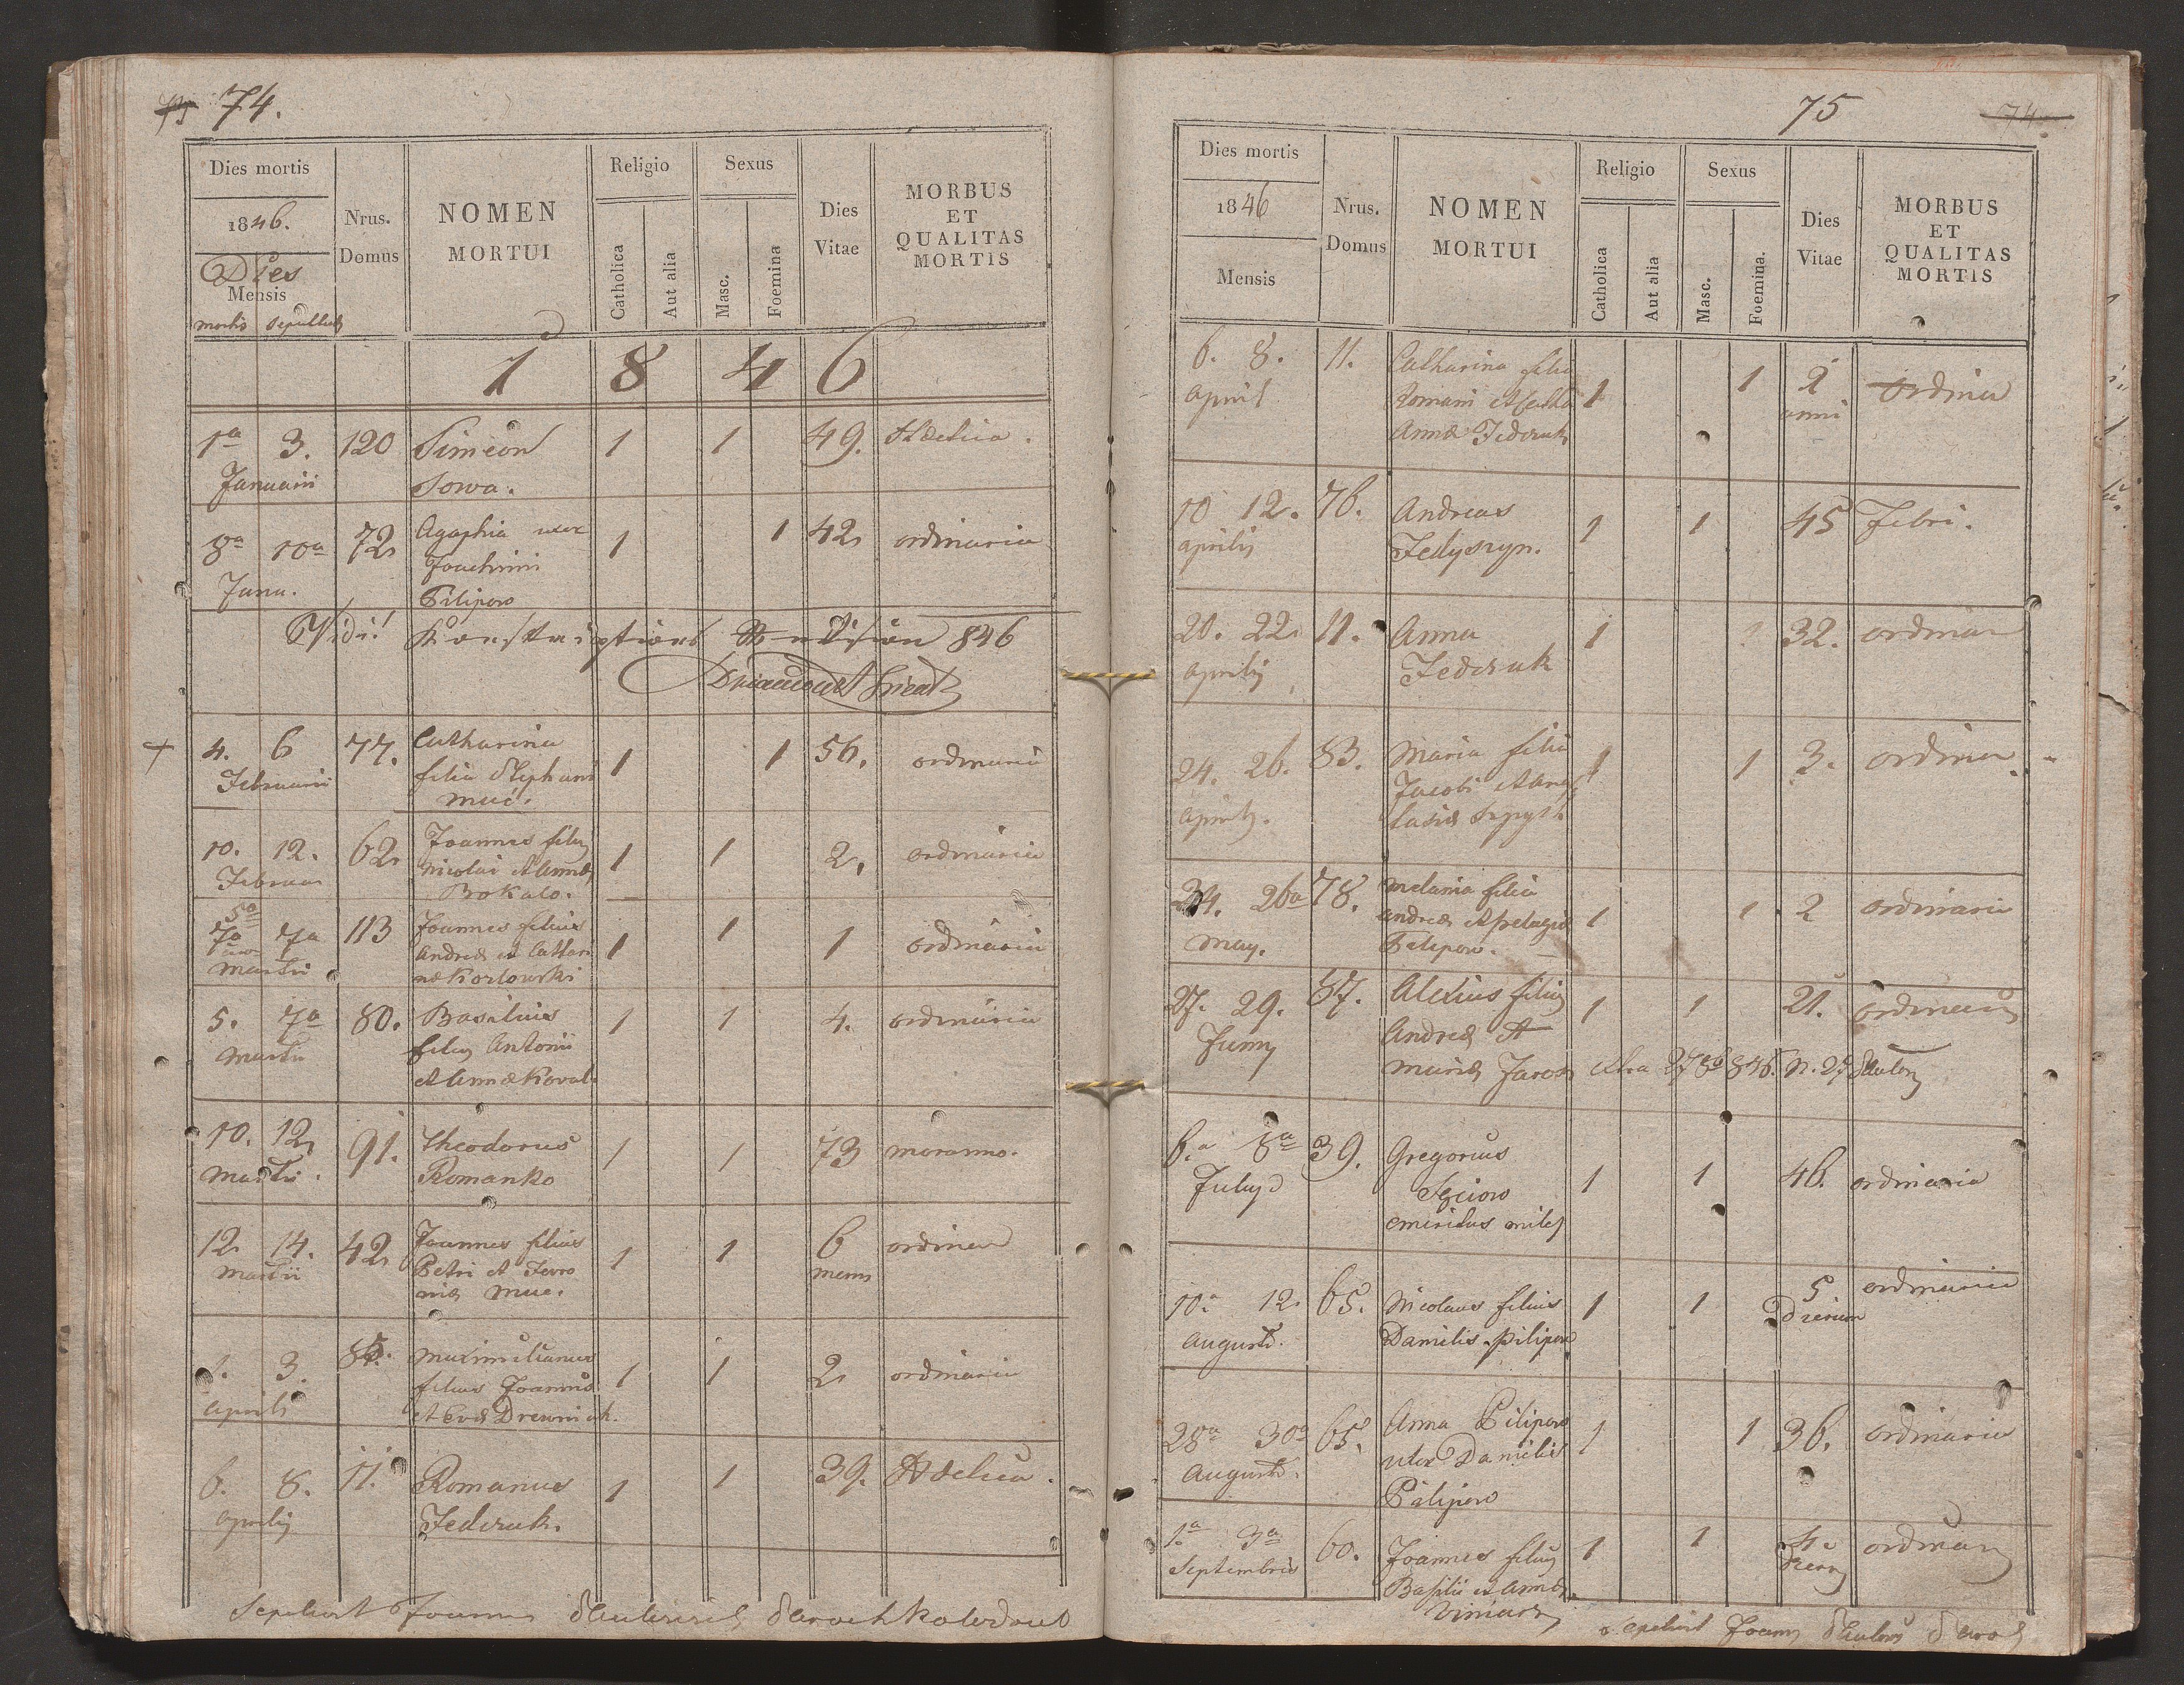 74.
Dies mortis
1846.
Dies
Mensis
mortis sepulturae
Nrus.
Domus
NOMEN
MORTUI
Religio
Catholica
Aut alia
Sexus
Masc.
Foemina
Dies
Vitae
MORBUS
ET
QUALITAS
MORTIS
1 8 4 6
1a 3. 120 Simeon 1 1 49.
Januarii Sowa.
8a 10a 72 Agaphia uxor 1 1 42 ordinaria
Joachimi
Janu. Pilipow
Vidi! 846
4. 6 77. Catharina 1 1 56. ordinaria
Februarii filia Stephani
Muc.
10. 12. 62. Joannes filius 1 1 2. ordinaria
Nicolai et Annae
Bokalo.
5a
7a 7a 113 Joannes filius 1 1 1 ordinaria
Andreae et Cathari
Martii nae Kozlowski
5. 7a 80. Basilius 1 1 4. ordinaria
Martii filius Antonii
et Annae Koval
10. 12 91. Theodorus 1 1 73
Martii. Romanko
12. 14. 42 Joannes filius 1 1 6 ordinar
Martii Petri et mens
Muc.
1. 3. Maximilianus 1 1 2 ordinaria
Aprilis filius Joannis
et Evae Drewniak.
6. 8. 11. Romanus 1 1 39.
Aprilis Federuk.
Sepelivit Joannes
75
74
Dies mortis
1846
Mensis
Nrus.
Domus
NOMEN
MORTUI
Religio
Catholica
Aut alia
Sexus
Masc.
Foemina.
Dies
Vitae
MORBUS
ET
QUALITAS
MORTIS
6. 8. 11. Catharina filia 1 1 ordinar
April Romani et anni
Annae Federuk
10 12. 76. Andreas 1 1 45 Febri.
Aprilis Fedyszyn.
20. 22. 11. Anna 1 32. ordinar
Aprilis Federuk
24. 26. 83. Maria filia 1 1 3. ordinar
Jacobi et Anas
Aprilis. tasiae
24. 26a 78. Melania filia 1 1 2 ordinaria
Andreae et Pelagiae
May. Pilipow.
27. 29. 57. Alexius filius 1 1 21. ordinaria
Andreae et
Juny Mariae Jaros
6.a 8a 39. Gregorius 1 1 46. ordinaria
July
emeritus miles
10.a 12. 65. Nicolaus filius 1 1 5 ordinaria
Dierum
Augusti. Danielis Pilipow
28a 30a 65. Anna Pilipow 1 1 36. ordinaria
Augusti. uxor Danielis
Pilipow
1.a 3a 60. Joannes filius 1 1 4. ordinar
Septembris Basilii et Annae